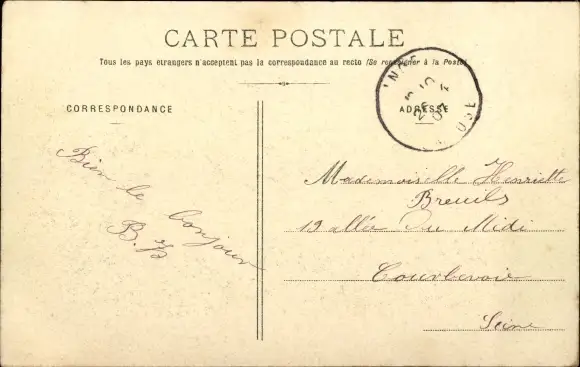 CARTE POSTALE
Tous les pays étrangers n'acceptent pas la correspondance au recto (Se renseigner à la Poste)
CORRESPONDANCE
ADRESSE
Bien le bonjour
B. B
Mademoiselle Henriette
Breuils
19 allée Du Midi
Courbevoie
Seine